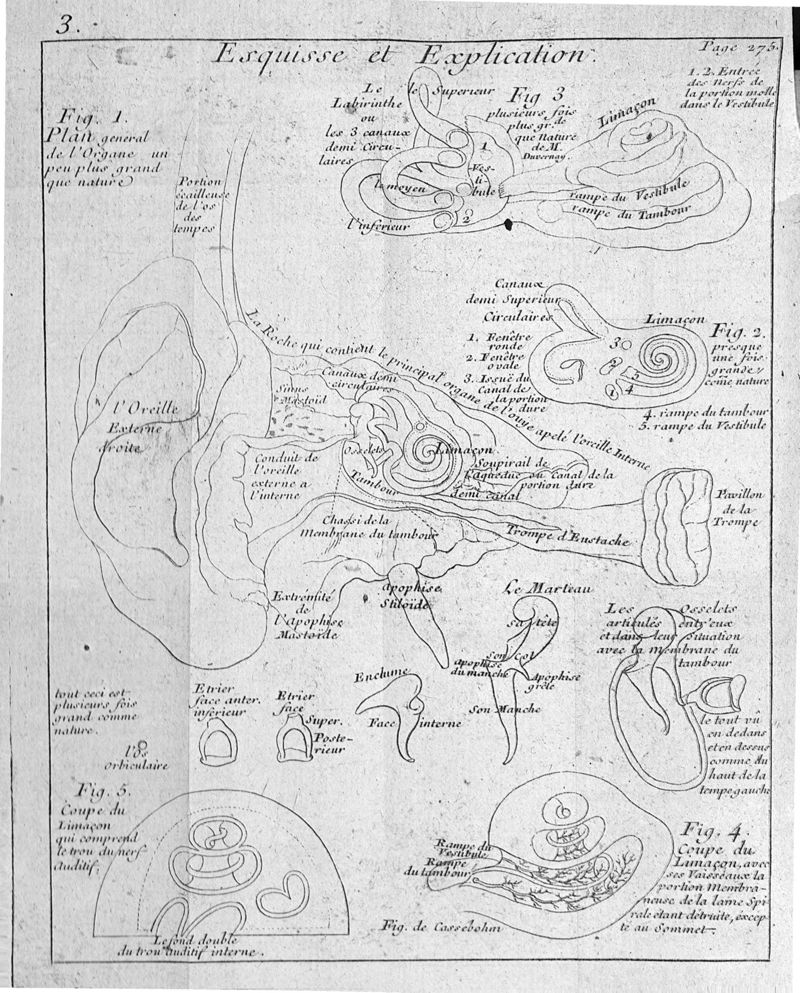 3.
Page 275.
Esquisse et Explication.
Fig. 1.
Plan general
de l'Organe un
peu plus grand
que nature
Portion
écailleuse
de l'os
des
tempes
Le
Labirinthe
ou
les 3 canaux
demi Circu-
laires
le Superieur
le moyen
l'inferieur
Fig 3
plusieurs fois
plus gr.de
que nature
de M.
Duverney.
1
Ves-
ti-
bule
2
Limaçon
rampe du Vestibule
rampe du Tambour
1. 2. Entrée
des Nerfs de
la portion molle
dans le Vestibule
Canaux
demi Superieur
Circulaires
1. Fenêtre
ronde
2. Fenêtre
ovale
3. Issuë du
Canal de
la portion
dure
Limaçon
3
2
5
1
4
Fig. 2.
presque
une fois
grande
come nature
4. rampe du tambour
5. rampe du Vestibule
La Roche qui contient le principal organe de l'ouye apelé l'oreille Interne
Canaux demi
circulaires
Sinus
Mastoid
l'Oreille
Externe
droite
Osselets
Limaçon
Conduit de
l'oreille
externe a
l'interne
Tambour
Soupirail de
l'aqueduc ou Canal de la
portion dure
demi canal
Chassi de la
Membrane du tambour
Trompe d'Eustache
Pavillon
de la
Trompe
Extrémité
de
l'apophise
Mastoïde
Apophise
Stiloïde
Le Marteau
sa tête
Son Col
apophise
du manche
Apophise
grele
Son Manche
Les Osselets
articulés entr'eux
et dans leur Situation
avec la membrane du
tambour
le tout vû
en dedans
et en dessus
comme du
haut de la
tempe gauche
tout ceci est
plusieurs fois
grand comme
nature
l'os
orbiculaire
Etrier
face anter.
inférieur
Etrier
face
Super.
Poste-
rieur
Enclume
Face interne
Fig. 5.
Coupe du
Limaçon
qui comprend
le trou du nerf
Auditif.
Le fond double
du trou auditif interne.
Rampe du
Vestibule
Rampe
du tambour
Fig. de Cassebohm
Fig. 4.
Coupe du
Limaçon, avec
ses Vaisseaux la
portion Membra-
neuse de la lame Spi
rale étant détruite, excep
té au Sommet.